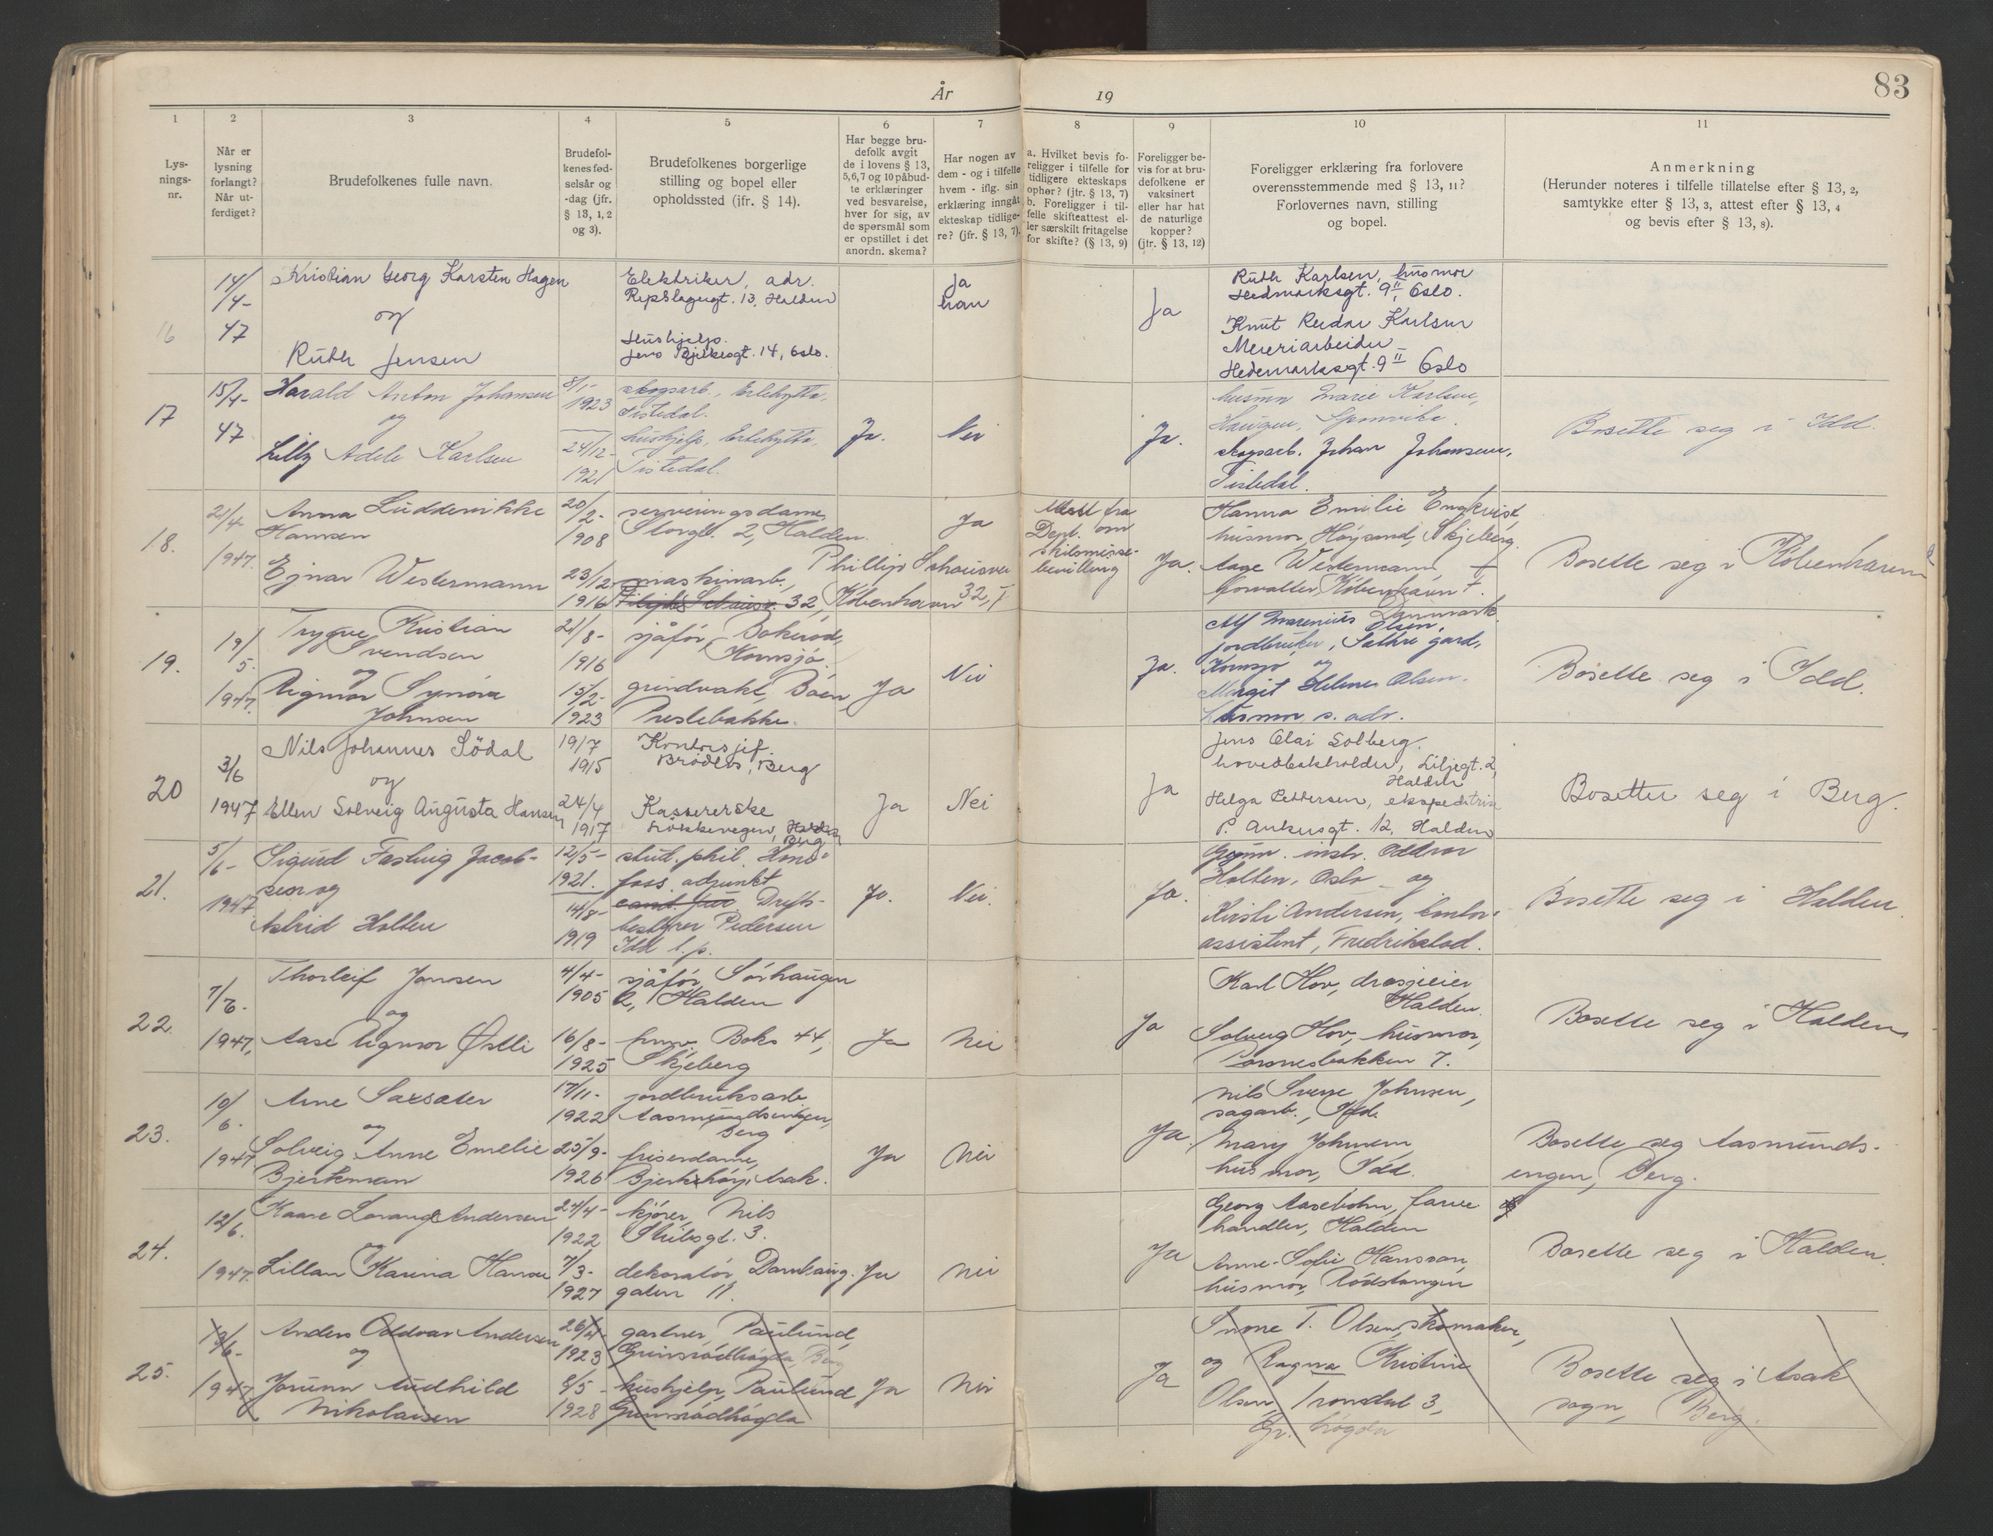 År 19
83
1 2 3 4 5 6 7 8 9 10 11
Lys-
nings-
nr.
Når er
lysning
forlangt?
Når ut-
ferdiget?
Brudefolkenes fulle navn.
Brudefol-
kenes fød-
selsår og
-dag (jfr.
§ 13, 1, 2
og 3).
Brudefolkenes borgerlige
stilling og bopel eller
opholdssted (jfr. § 14).
Har begge bru-
defolk avgit
de i lovens § 13,
5,6,7 og 10 påbud-
te erklæringer
ved besvarelse,
hver for sig, av
de spørsmål som
er opstillet i det
anordn. skema?
Har nogen av
dem - og i tilfelle
hvem - iflg. sin
erklæring inngåt
ekteskap tidlige-
re? (jfr. § 13, 7).
a. Hvilket bevis fo-
religger i tilfelle for
tidligere ekteskaps
ophør? (jtr. § 13, 7)
b. Foreligger i til-
felle skifteattest el-
ler særskilt fritagelse
for skifte? (§ 13, 9)
Foreligger be-
vis for at bru-
defolkene er
vaksinert
eller har hat
de naturlige
kopper?
(jfr. § 13, 12)
Foreligger erklæring fra forlovere
overensstemmende med § 13, 11?
Forlovernes navn, stilling
og bopel.
Anmerkning
(Herunder noteres i tilfelle tillatelse efter § 13, 2,
samtykke efter § 13, 3, attest efter § 13, 4
og bevis efter § 13, 8).
16
14/
4-
47
Kristian Georg Karsten Hagen
og
Ruth Jensen
Elektriker, adr.
Repslagergt. 13, Halden
Hushjelp.
Jens Bjelkesgt. 14, Oslo.
Ja
han
Ja
Ruth Karlsen, husmor
Hedmarksgt. 9 II, Oslo.
Knut Reidar Karlsen
Meieriarbeider
Hedemarksgt. 9 II Oslo
17
15/4-
47
Harald Anton Johansen
og
Lilly Adele Karlsen
8/1-
1923
24/12-
1921
skogsarb., Erlehytta,
Tistedal.
hushjelp, Erlehytta,
Tistedal.
Ja.
Nei
Ja.
husmor Marie Karlsen,
Haugen, Sponvika.
skogsarb. Johan Johansen,
Tistedal.
Bosette seg i Idd.
18.
21/4
1947.
Anna Luddevikke
Hansen
Ejnar Westermann
20/
2-
1908
23/12
1916
serveringsdame,
Storgt. 2, Halden.
maskinarb., Phillip Schousvei
32, København 32, I
Ja
Dept. om
skilsmisse-
bevilling
Ja.
Hanna Emilie Engkvist
husmor, Høysand, Skjeberg.
Aage Westermann
forvalter København F.
Danmark
Bosette seg i København
19.
19/
5.
1947.
Trygve Kristian
Svendsen
og
Rigmor Synøva
Johnsen
21/8-
1916
15/2-
1923
sjåfør, Bokerød,
Kornsjø.
grindvakt, Båen,
Prestebakke.
Ja
Nei
Ja.
Alf Marenius Olsen,
jordbruker, Sathre gard,
Kornsjø og
Margit Helene Olsen.
Husmor s. adr.
Bosette seg i Idd.
20
3/6
1947
Nils Johannes Södal
og
Ellen Solveig Augusta Hansen
19/7
1915
24/4
1917
Kontorsjef.
Brödløs, Berg
Kassererske
Berg
Ja
Nei
Ja
Jens Olai Solberg.
hovedbokholder, Liljegt. 2,
Halden
Helga Pettersen, ekspeditrise
P. Ankersgt. 12, Halden
Bosetter seg i Berg.
21.
5/
6-
1947.
Sigurd Fasting Jacob-
sen og
Astrid Holten
12/5-
1921.
14/8-
1919
stud. phil. Høne-
foss. adjunkt
cand. jur Drifts-
bestyrer Pedersen
Idd l/p.
Ja.
Nei.
Ja.
Gymn. instr. Oddvar
Holten, Oslo og
Kirsti Andersen, kontor-
assistent, Fredrikstad.
Bosette seg i Halden.
22.
7/
6.
1947,
Thorleif Jonsen
og
Aase Rigmor Østli
4/4-
1905
16/8-
1925
sjåfør Sørhaugen
2, Halden
hmv. Boks 44,
Skjeberg
Ja
Nei
Ja
Karl Hov, drosjeeier
Halden.
Solveig Hov, husmor,
Porsnesbakken 7.
Bosette seg i Halden
23.
10/
6.
1947
Arne Saxsæter
og
Solveig Anne Emelie
Bjerkman
17/11-
1922
25/9-
1926
jordbruksarb.
Aasmundsengen,
Berg
friserdame,
Bjerkhøy, Asak.
Ja
Nei
Ja.
Nils Sverre Johnsen,
sagarb., Idd.
Mary Johnsen,
husmor, Idd.
Bosette seg Aasmunds-
engen, Berg.
24.
12/
6.
1947.
Kaare Lorang Andersen
og
Lillan Karina Hansen
27/4-
1922
7/3-
1927
kjører, Nils
Stubsgt. 3.
dekoratør, Damhaug-
gaten 11.
Ja
Nei
Ja
Georg Aasebøhn, farve
handler, Halden
Anne-Sofie Hansson,
husmor, Rødstangen
Bosette seg i Halden.
25.
13/6-
1947
Anders Oddvar Andersen
og
Jorunn Audhild
Nikolaisen
26/4-
1923
8/5-
1928
gartner, Paulund,
Grimsrødhøgda, Berg
hushjelp, Paulund
Grimsrødhøgda
Ja
Nei
Ja
T. Olsen, skomaker,
og Ragna Kristine
Olsen, Trondal 3,
Gr. høgda
Bosette seg i Asak
sogn, Berg.